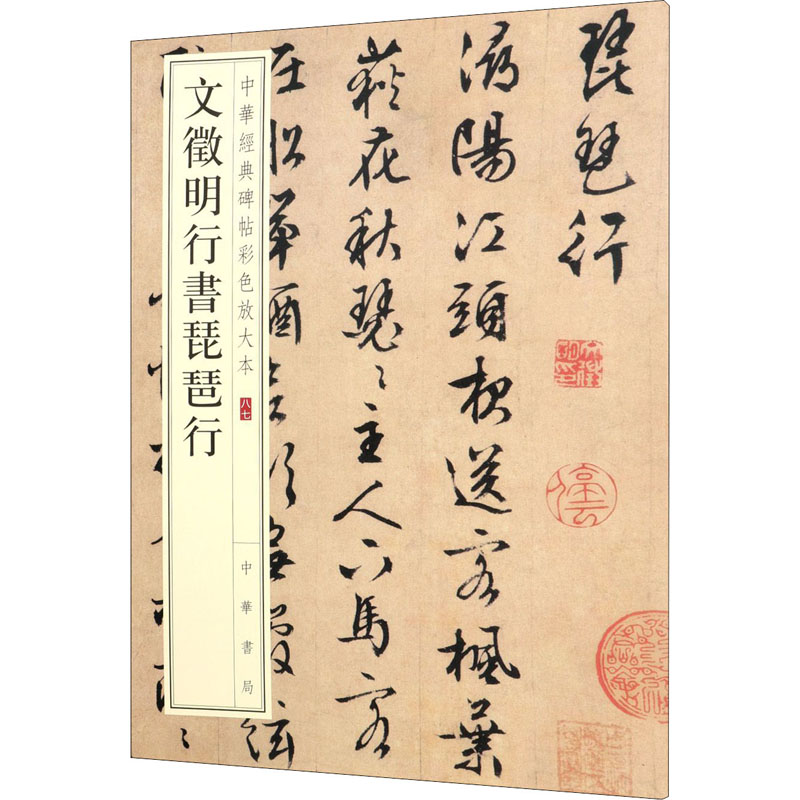 琵琶行
潯陽江頭夜送客楓葉
荻花秋瑟〻主人下馬客
在船舉酒欲飲無管絃
中華經典碑帖彩色放大本 八七
中華書局
文徵明行書琵琶行
文徵明印
停云